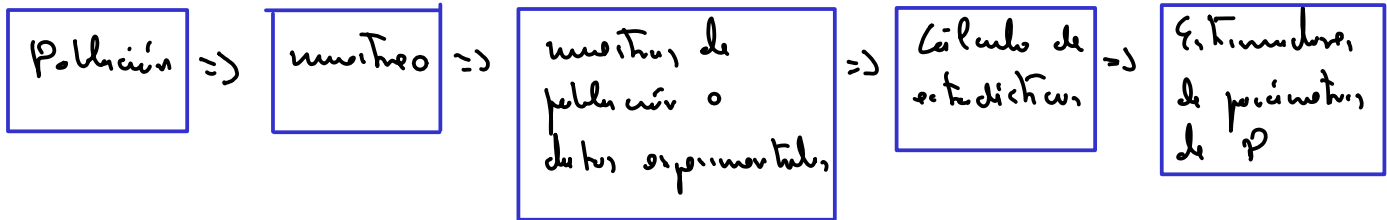 Población => muestreo => muestras de población o datos experimentales => Cálculo de estadísticas => Estimadores de parámetros de P